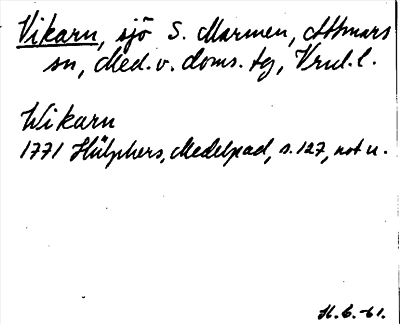 Vikarn, sjö S. Marmen, Attmars
sn, Med. v. doms. tg, Vrnl. l.
Wikarn
1771 Hülphers, Medelpad, s. 127, not u.
H. G. -61.